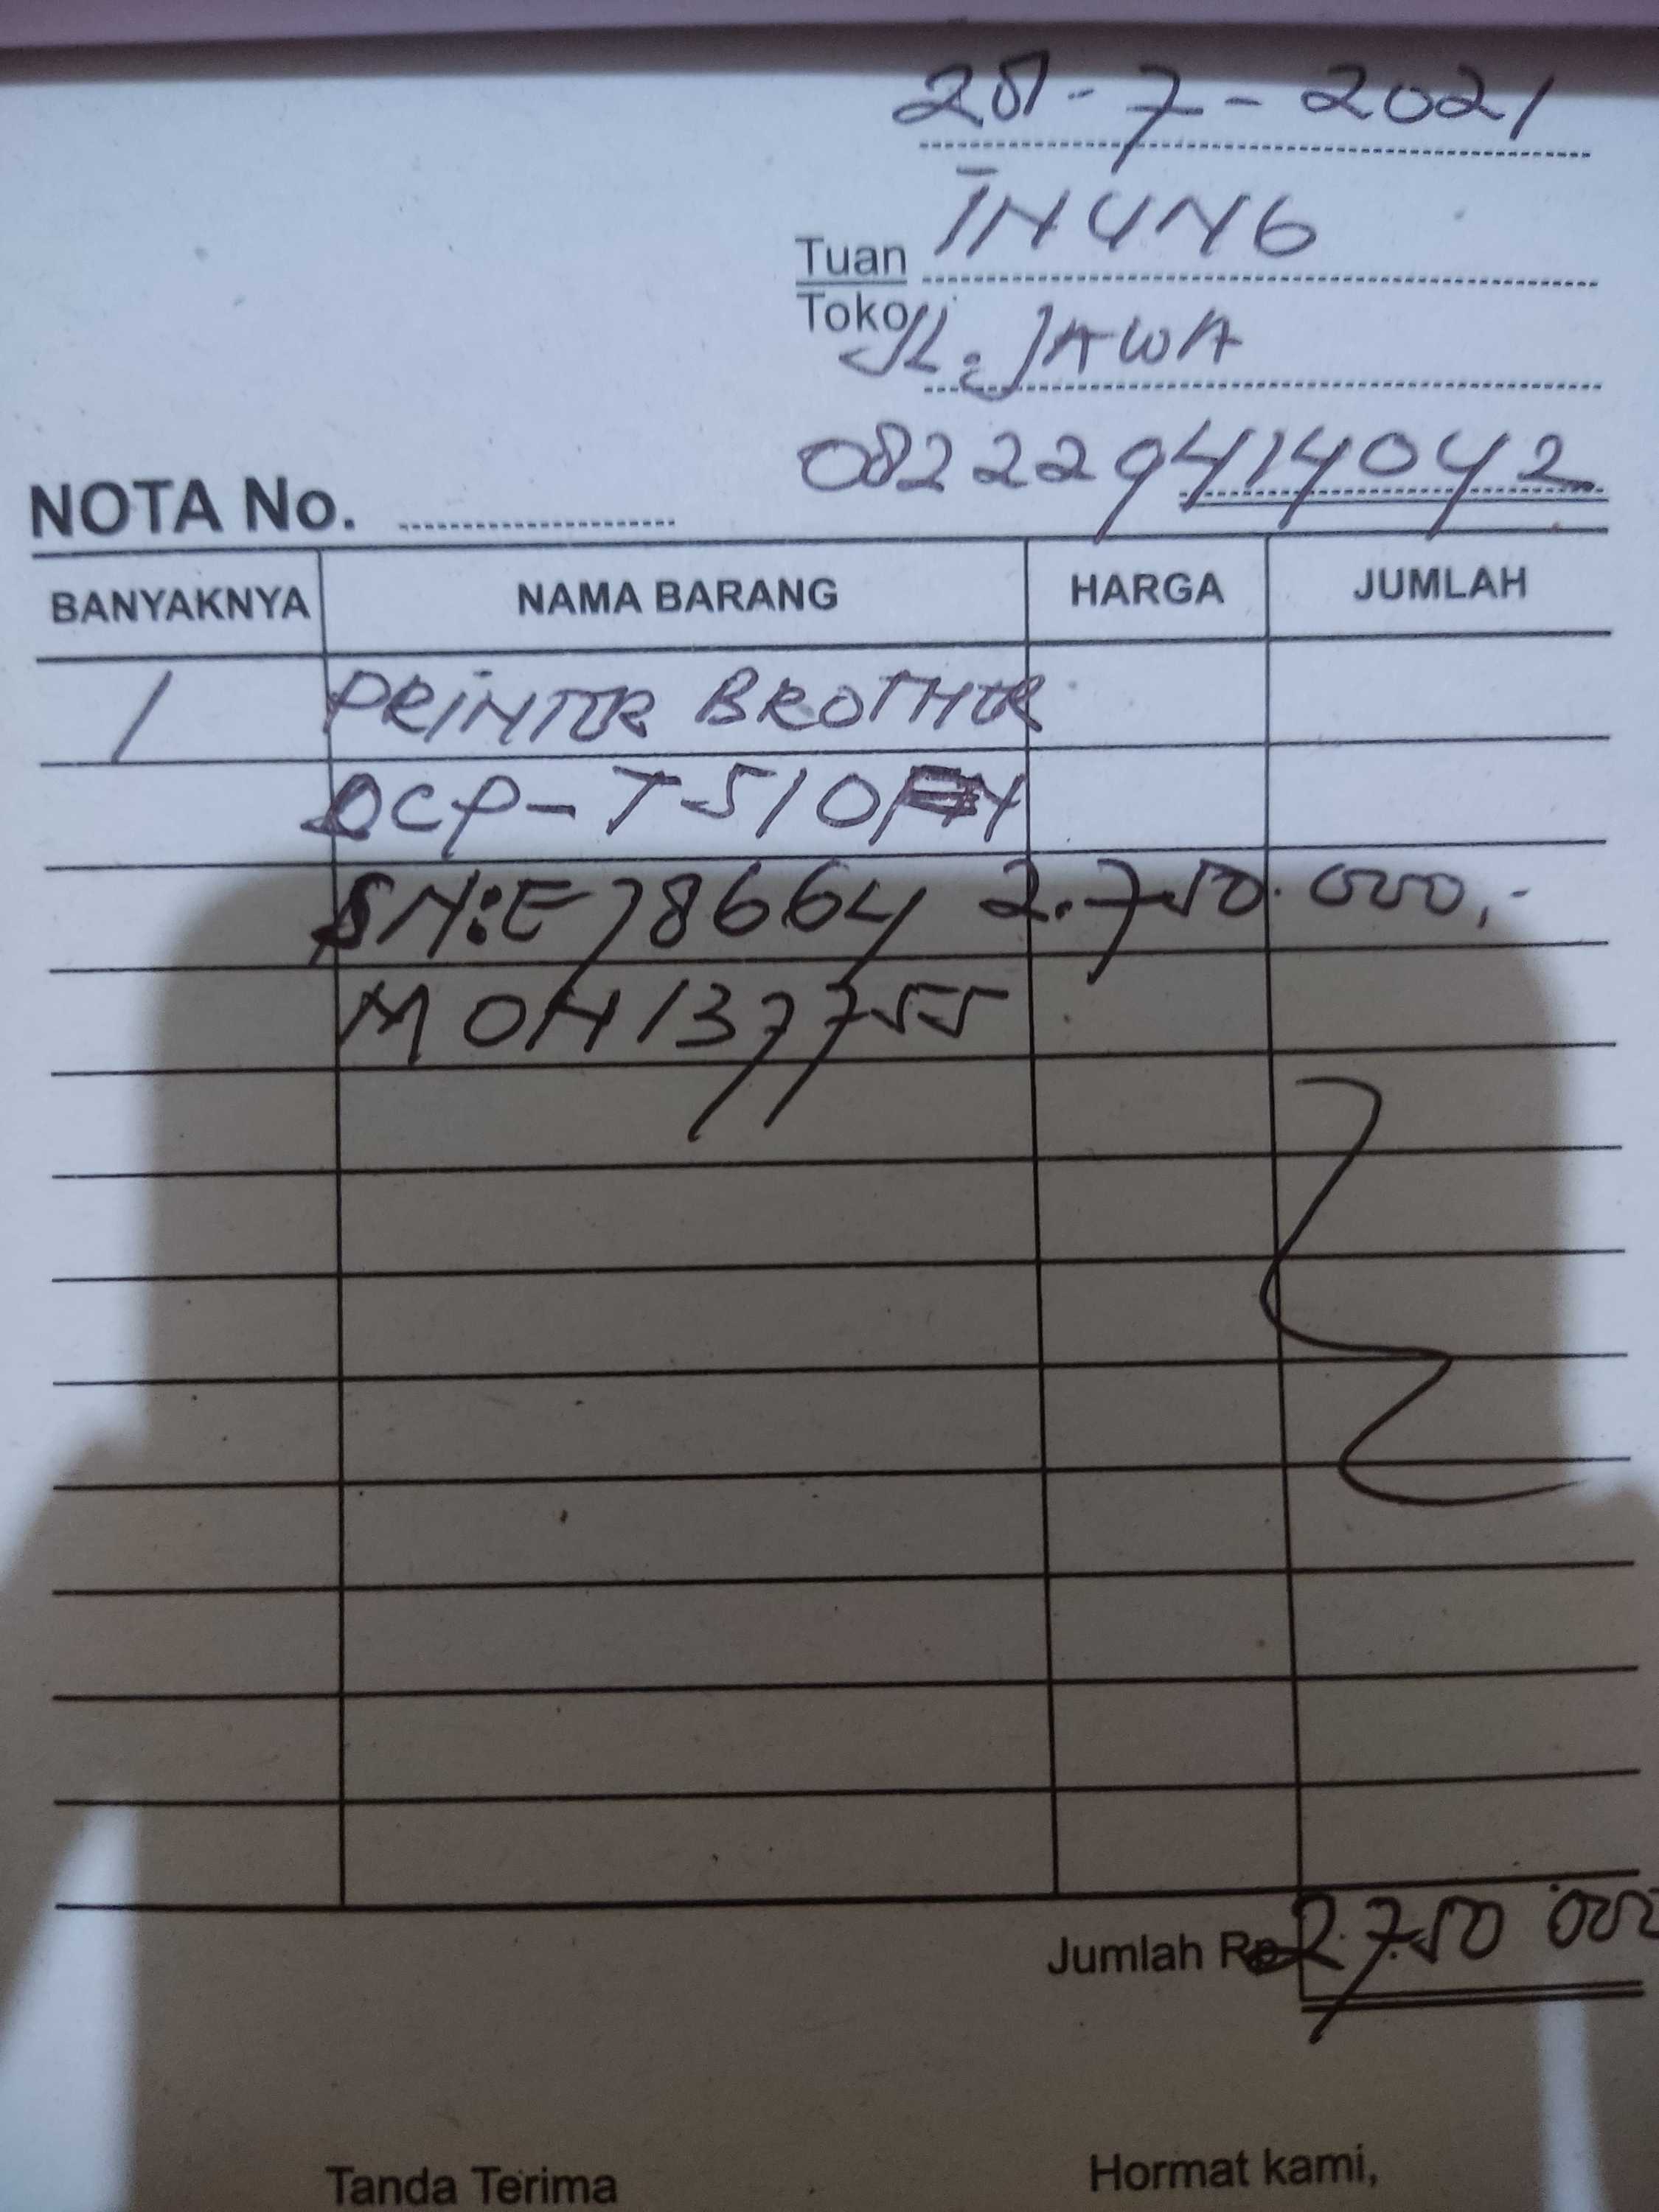 28-7-2021
Tuan INUNG
Toko
JL. JAWA
082229414042
NOTA No.
BANYAKNYA NAMA BARANG HARGA JUMLAH
1 PRINTER BROTHER
DCP-T510
SN:E78664 2.750.000,-
M0H137755
Jumlah Rp 2.750.000
Tanda Terima Hormat kami,